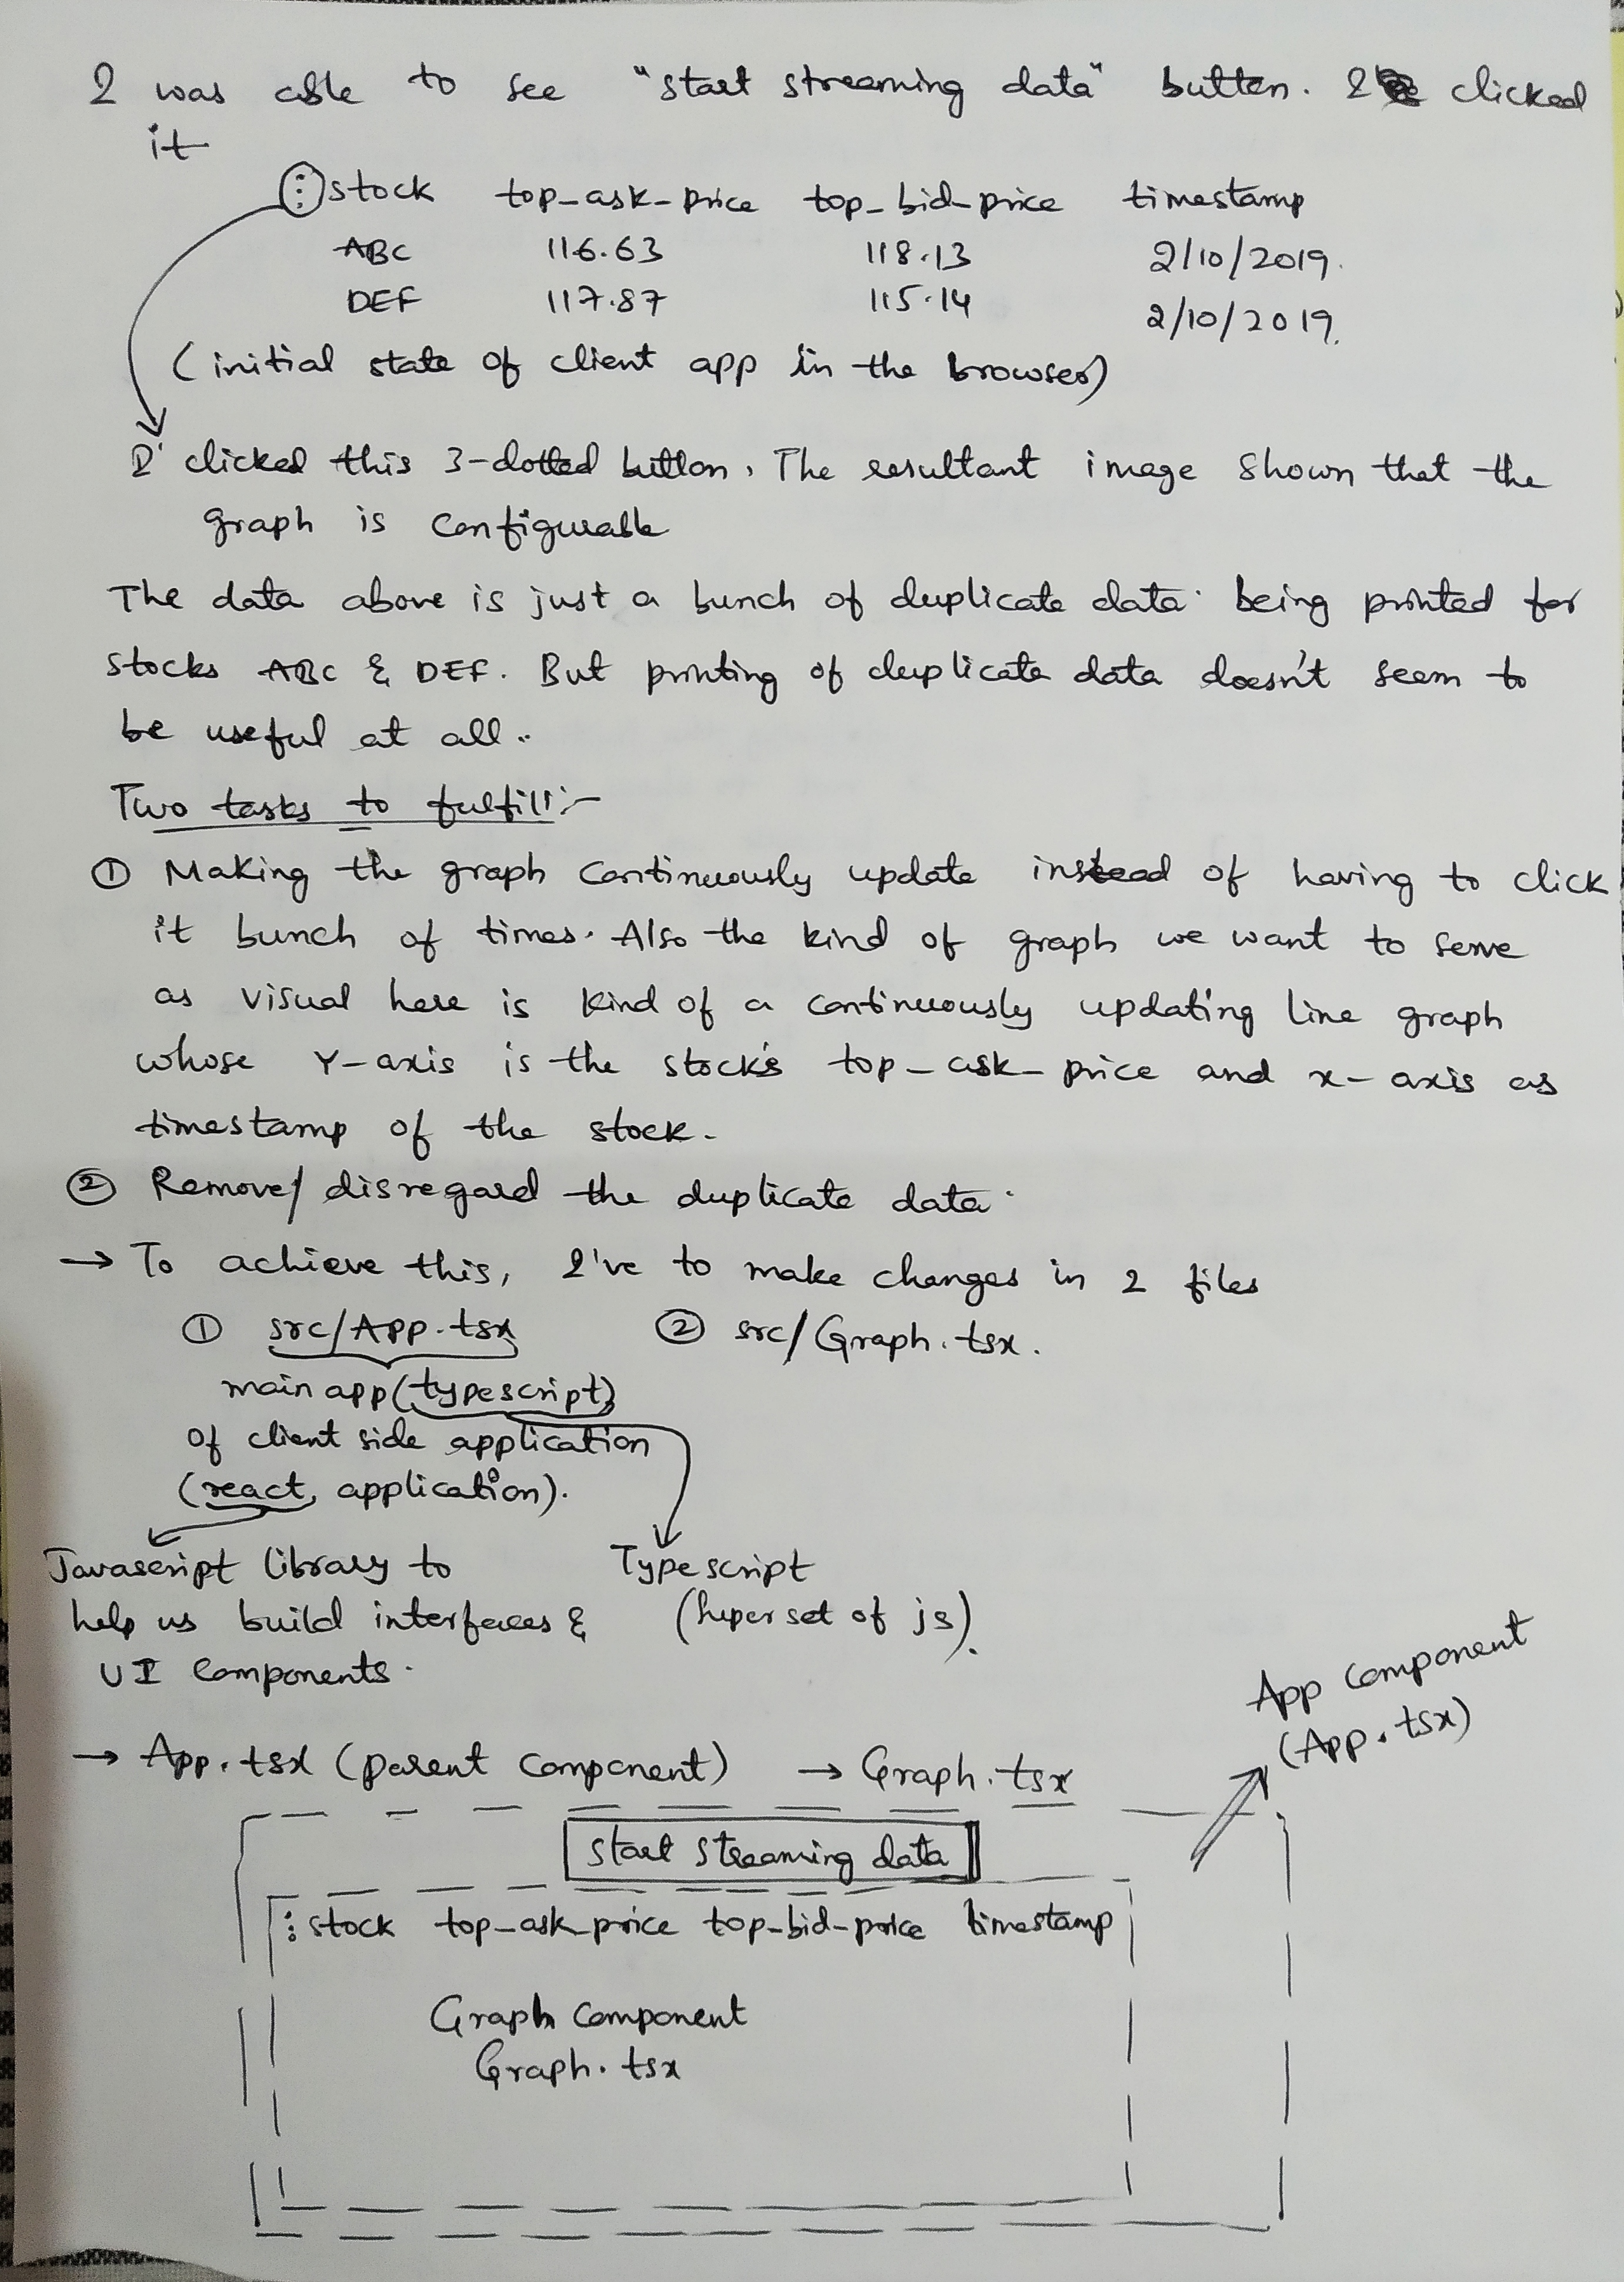 I was able to see "start streaming data" button. I clicked
it
⋮ stock top_ask_price top_bid_price timestamp
ABC 116.63 118.13 2/10/2019.
DEF 117.87 115.14 2/10/2019.
(initial state of client app in the browser)
I clicked this 3-dotted button. The resultant image shown that the
graph is configurable
The data above is just a bunch of duplicate data being printed for
stocks ABC & DEF. But printing of duplicate data doesn't seem to
be useful at all.
Two tasks to fulfill:-
① Making the graph continuously update instead of having to click
it bunch of times. Also the kind of graph we want to serve
as visual here is kind of a continuously updating line graph
whose Y-axis is the stock's top_ask_price and x-axis as
timestamp of the stock.
② Remove/disregard the duplicate data.
→ To achieve this, I've to make changes in 2 files
① src/App.tsx ② src/Graph.tsx.
main app (typescript)
of client side application
(react application).
Javascript library to Typescript
help us build interfaces & (huperset of js).
UI components.
App component
(App.tsx)
→ App.tsx (parent component) → Graph.tsx
Start Streaming data
⋮ stock top_ask_price top_bid_price timestamp
Graph component
Graph.tsx